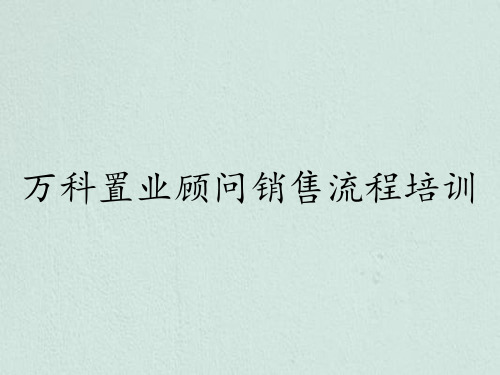 万科置业顾问销售流程培训